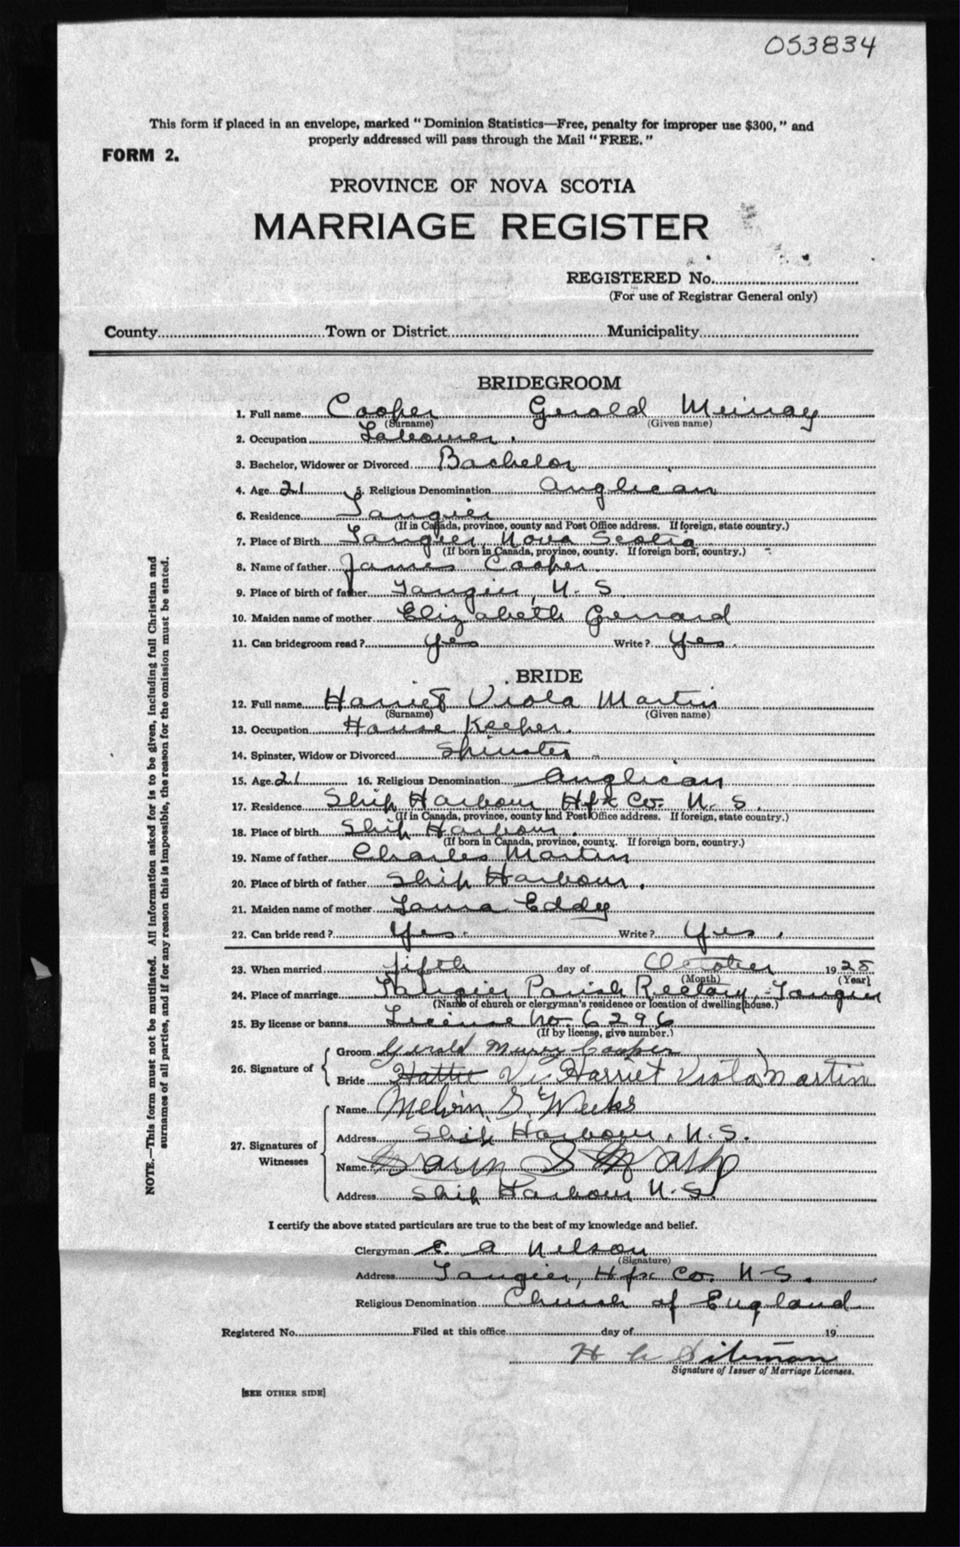 053834
This form if placed in an envelope, marked "Dominion Statistics—Free, penalty for improper use $300," and
properly addressed will pass through the Mail "FREE."
FORM 2.
PROVINCE OF NOVA SCOTIA
MARRIAGE REGISTER
REGISTERED No.
(For use of Registrar General only)
County Town or District Municipality
BRIDEGROOM
1. Full name Cooper Gerald Murray
(Surname) (Given name)
2. Occupation Labourer.
3. Bachelor, Widower or Divorced Bachelor
4. Age 21 5. Religious Denomination Anglican
6. Residence Tangier
(If in Canada, province, county and Post Office address. If foreign, state country.)
7. Place of Birth Tangier, Nova Scotia
(If born in Canada, province, county. If foreign born, country.)
8. Name of father James Cooper.
9. Place of birth of father Tangier, N. S.
10. Maiden name of mother Elizabeth Gerrard
11. Can bridegroom read? Yes Write? Yes.
BRIDE
12. Full name Harriet Viola Martin
(Surname) (Given name)
13. Occupation House Keeper.
14. Spinster, Widow or Divorced Spinster
15. Age 21 16. Religious Denomination Anglican
17. Residence Ship Harbour, Hfx Co. N. S.
(If in Canada, province, county and Post Office address. If foreign, state country.)
18. Place of birth Ship Harbour.
(If born in Canada, province, county. If foreign born, country.)
19. Name of father Charles Martin
20. Place of birth of father Ship Harbour.
21. Maiden name of mother Laura Eddy
22. Can bride read? Yes. Write? Yes.
23. When married fifth day of October 1925
(Month) (Year)
24. Place of marriage Tangier Parish Rectory, Tangier
(Name of church or clergyman's residence or location of dwelling house.)
25. By license or banns License No. 6296
(If by license, give number.)
26. Signature of
Groom Gerald Murry Cooper
Bride Hattie Vi Harriet Viola Martin
27. Signatures of Witnesses
Name Melvin S. Weeks
Address Ship Harbour, N. S.
Name
Address Ship Harbour N. S.
I certify the above stated particulars are true to the best of my knowledge and belief.
Clergyman E. A. Nelson
(Signature)
Address Tangier, Hfx Co. N. S.
Religious Denomination Church of England
Registered No. Filed at this office day of 19
H
Signature of Issuer of Marriage Licenses.
[SEE OTHER SIDE]
NOTE.—This form must not be mutilated. All information asked for is to be given, including full Christian and
surnames of all parties, and if for any reason this is impossible, the reason for the omission must be stated.